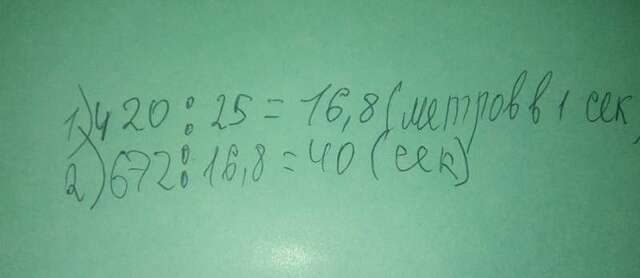 1) 420 : 25 = 16,8 (метров в 1 сек)
2) 672 : 16,8 = 40 (сек)